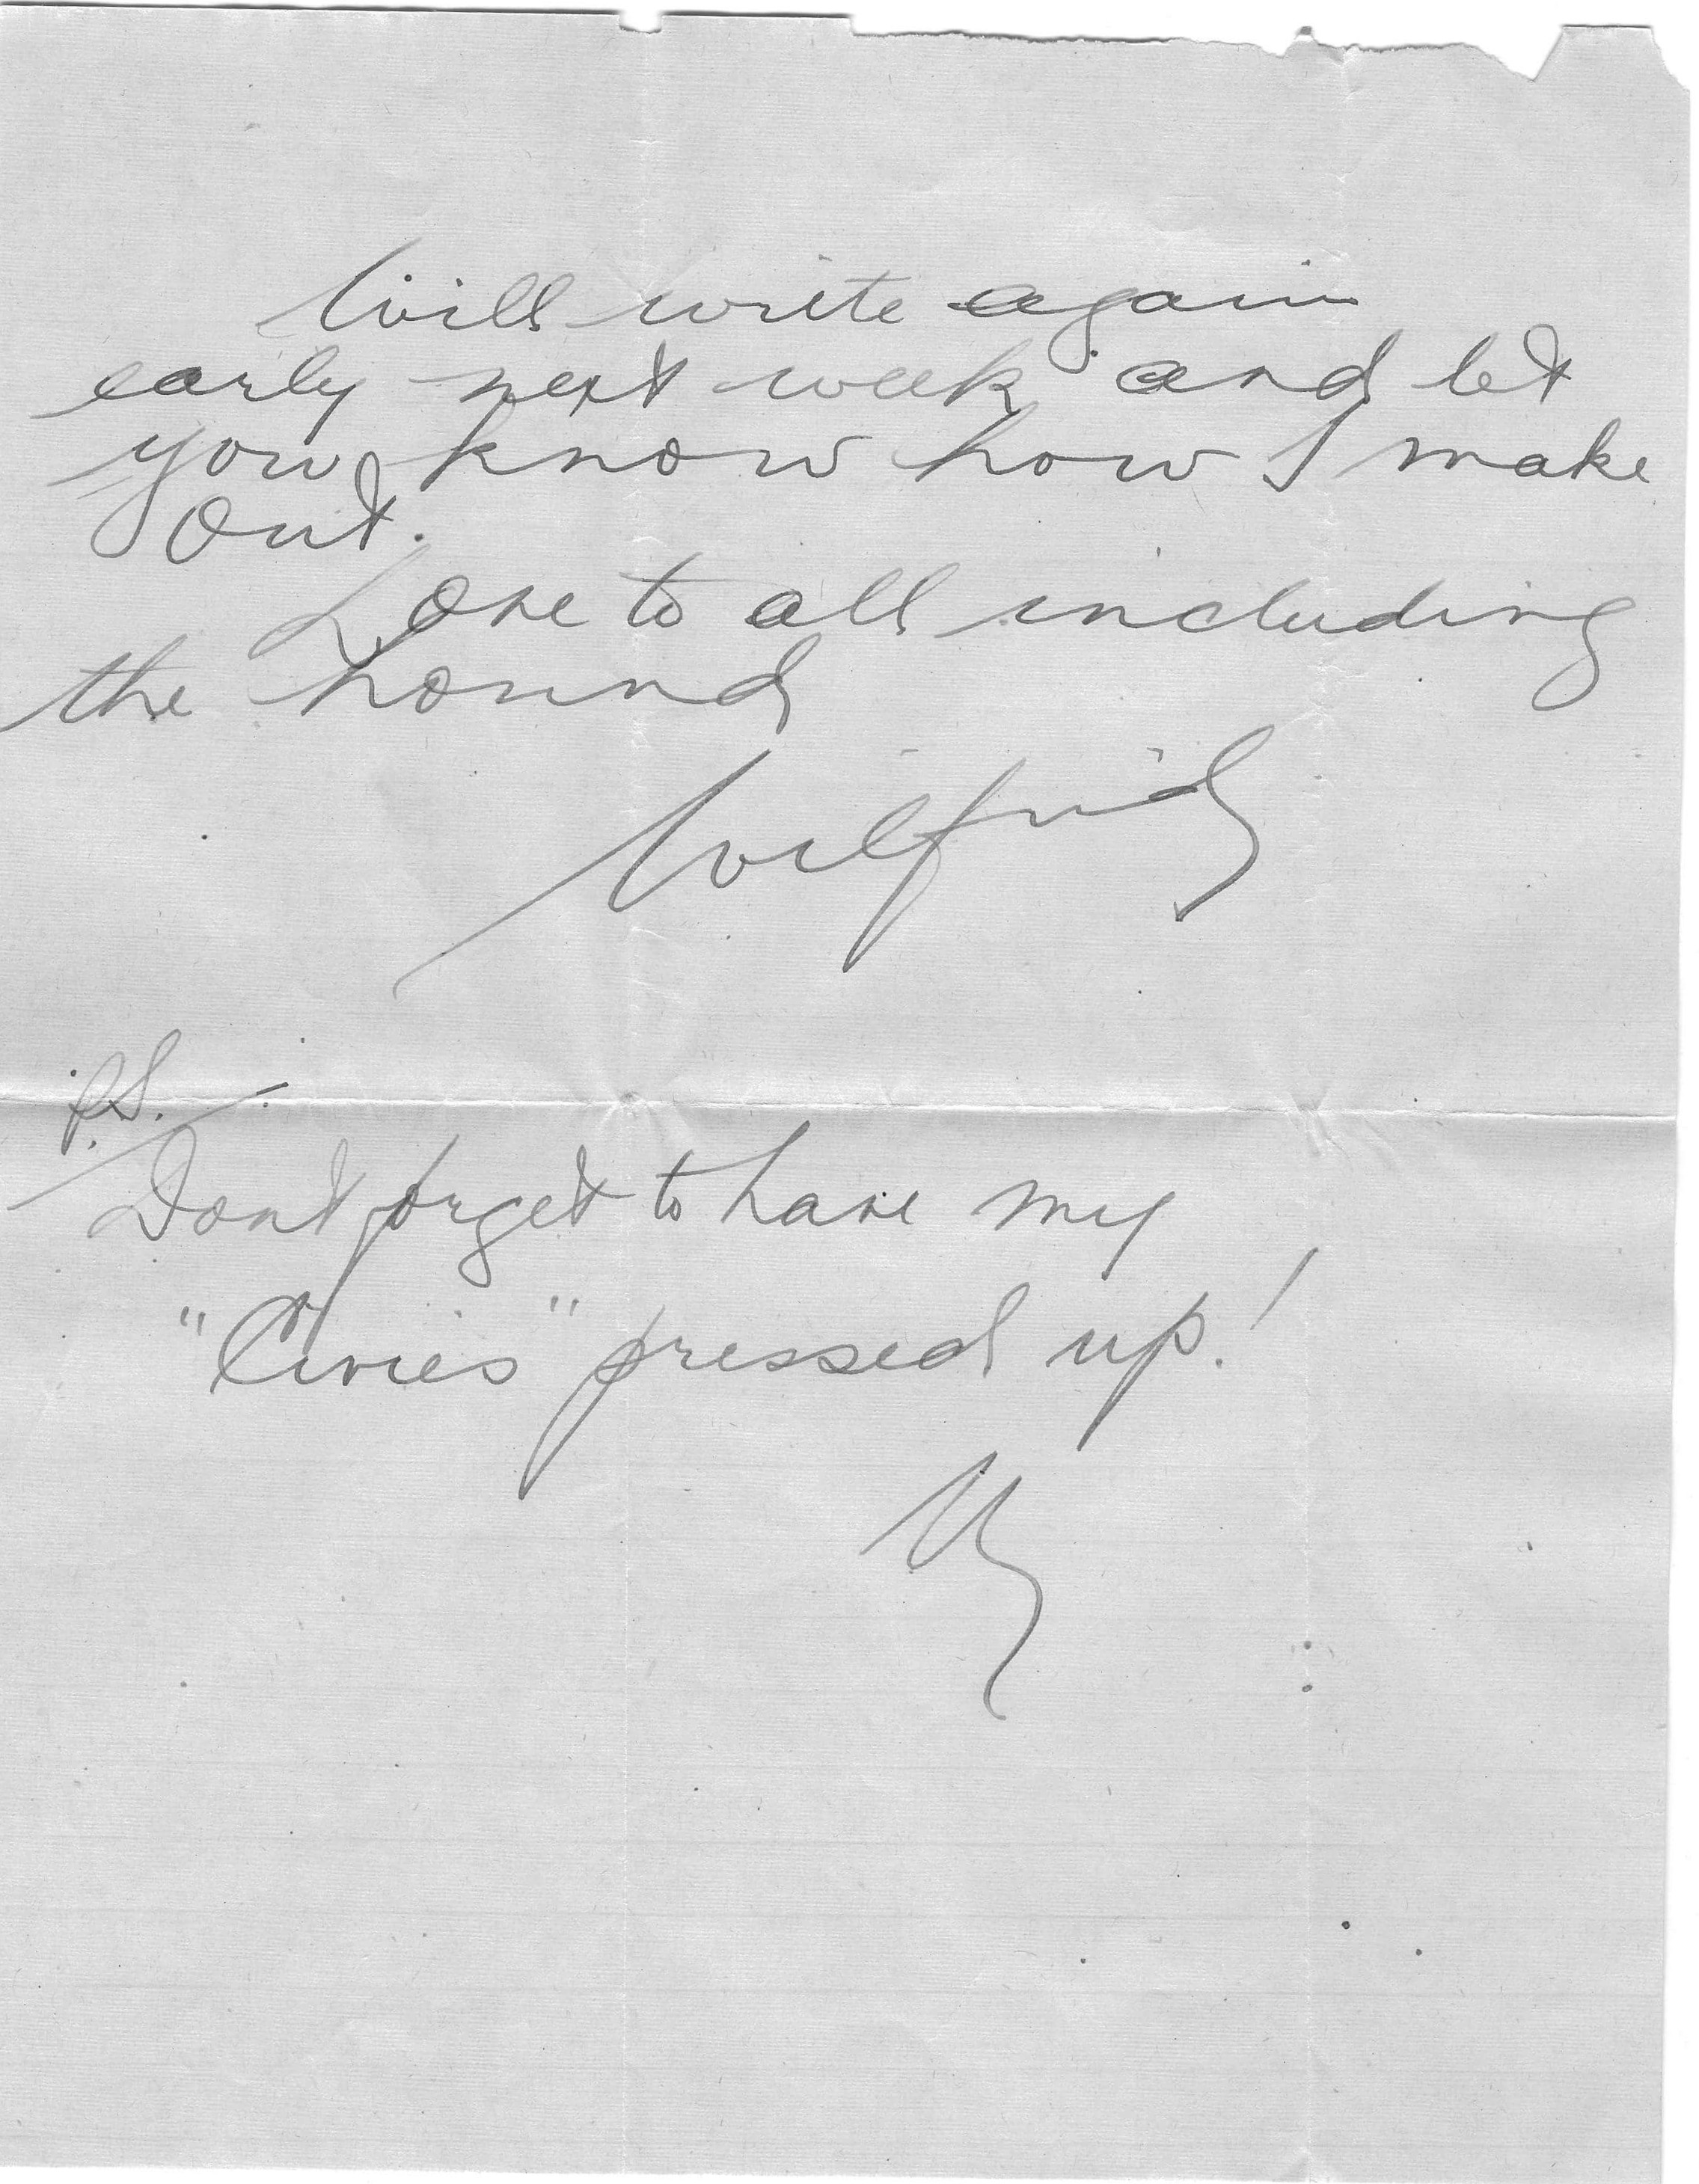 Will write again
early next week and let
you know how I make
out.
Love to all including
the hound
Wilfrid
P.S.
Dont forget to have my
"Civies" pressed up!
W